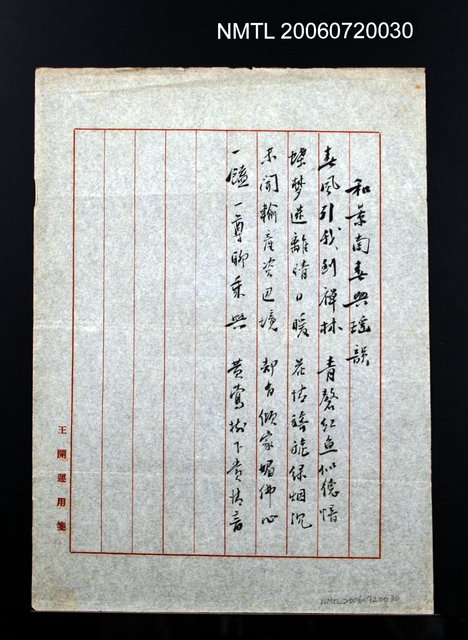 NMTL 20060720030
和景南春興瑤韻
春風引我到禪林 青磬紅魚似德愔
蝶夢迷離晴日暖 花情旖旎綠烟沉
未聞輸產答邊境 却有傾家媚佛心
一鑪一尊聊乘興 黃鶯樹下賣情音
王開運用箋
NMTL20060720030